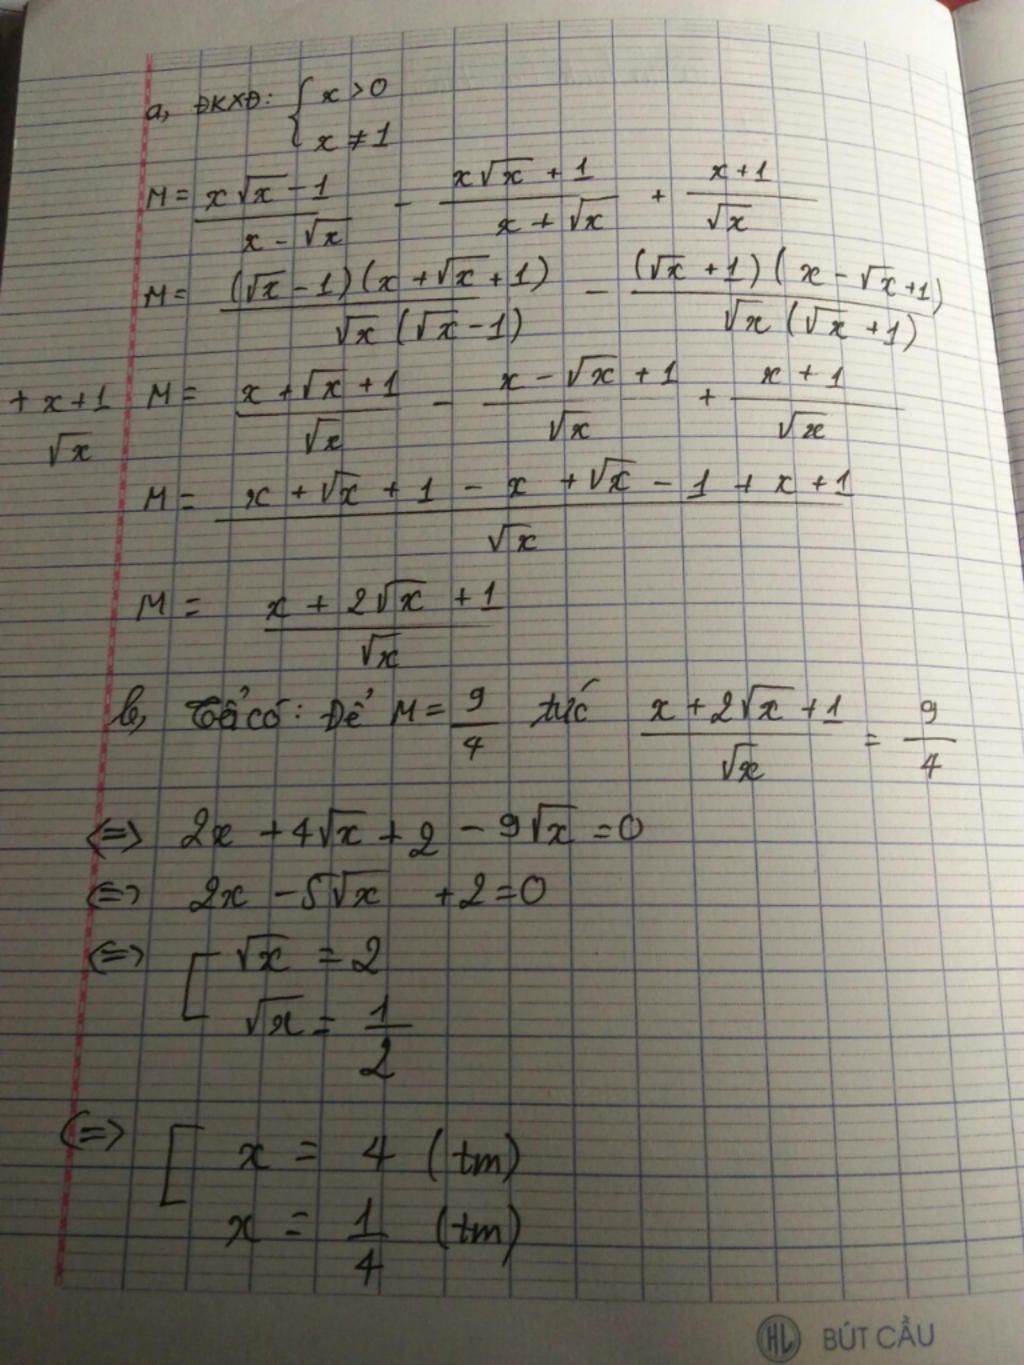 a, ĐKXĐ: { x > 0
x ≠ 1
M = x√x - 1 / x - √x - x√x + 1 / x + √x + x + 1 / √x
M = (√x - 1)(x + √x + 1) / √x (√x - 1) - (√x + 1)(x - √x + 1) / √x (√x + 1)
+ x + 1 / √x
M = x + √x + 1 / √x - x - √x + 1 / √x + x + 1 / √x
M = x + √x + 1 - x + √x - 1 + x + 1 / √x
M = x + 2√x + 1 / √x
b, có: Để M = 9/4 tức x + 2√x + 1 / √x = 9/4
<=> 2x + 4√x + 2 - 9√x = 0
<=> 2x - 5√x + 2 = 0
<=> [ √x = 2
√x = 1/2
<=> [ x = 4 (tm)
x = 1/4 (tm)
HL BÚT CẦU